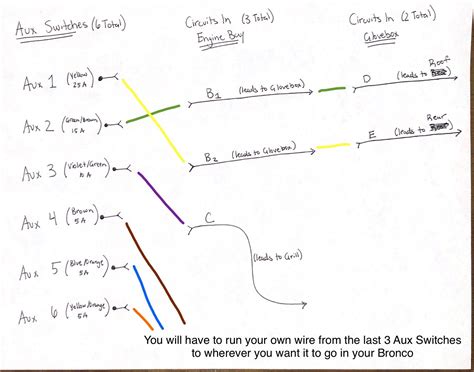 Aux Switches (6 Total)
Circuits In (3 Total)
Engine Bay
Circuits In (2 Total)
Glovebox
Aux 1 (Yellow) 25A
Aux 2 (Green/Brown) 15A
Aux 3 (Violet/Green) 10A
Aux 4 (Brown) 5A
Aux 5 (Blue/Orange) 5A
Aux 6 (Yellow/Orange) 5A
B1 (leads to Glovebox)
B2 (leads to Glovebox)
C
(leads to Grill)
D (leads to Roof)
E (leads to Rear)
You will have to run your own wire from the last 3 Aux Switches
to wherever you want it to go in your Bronco